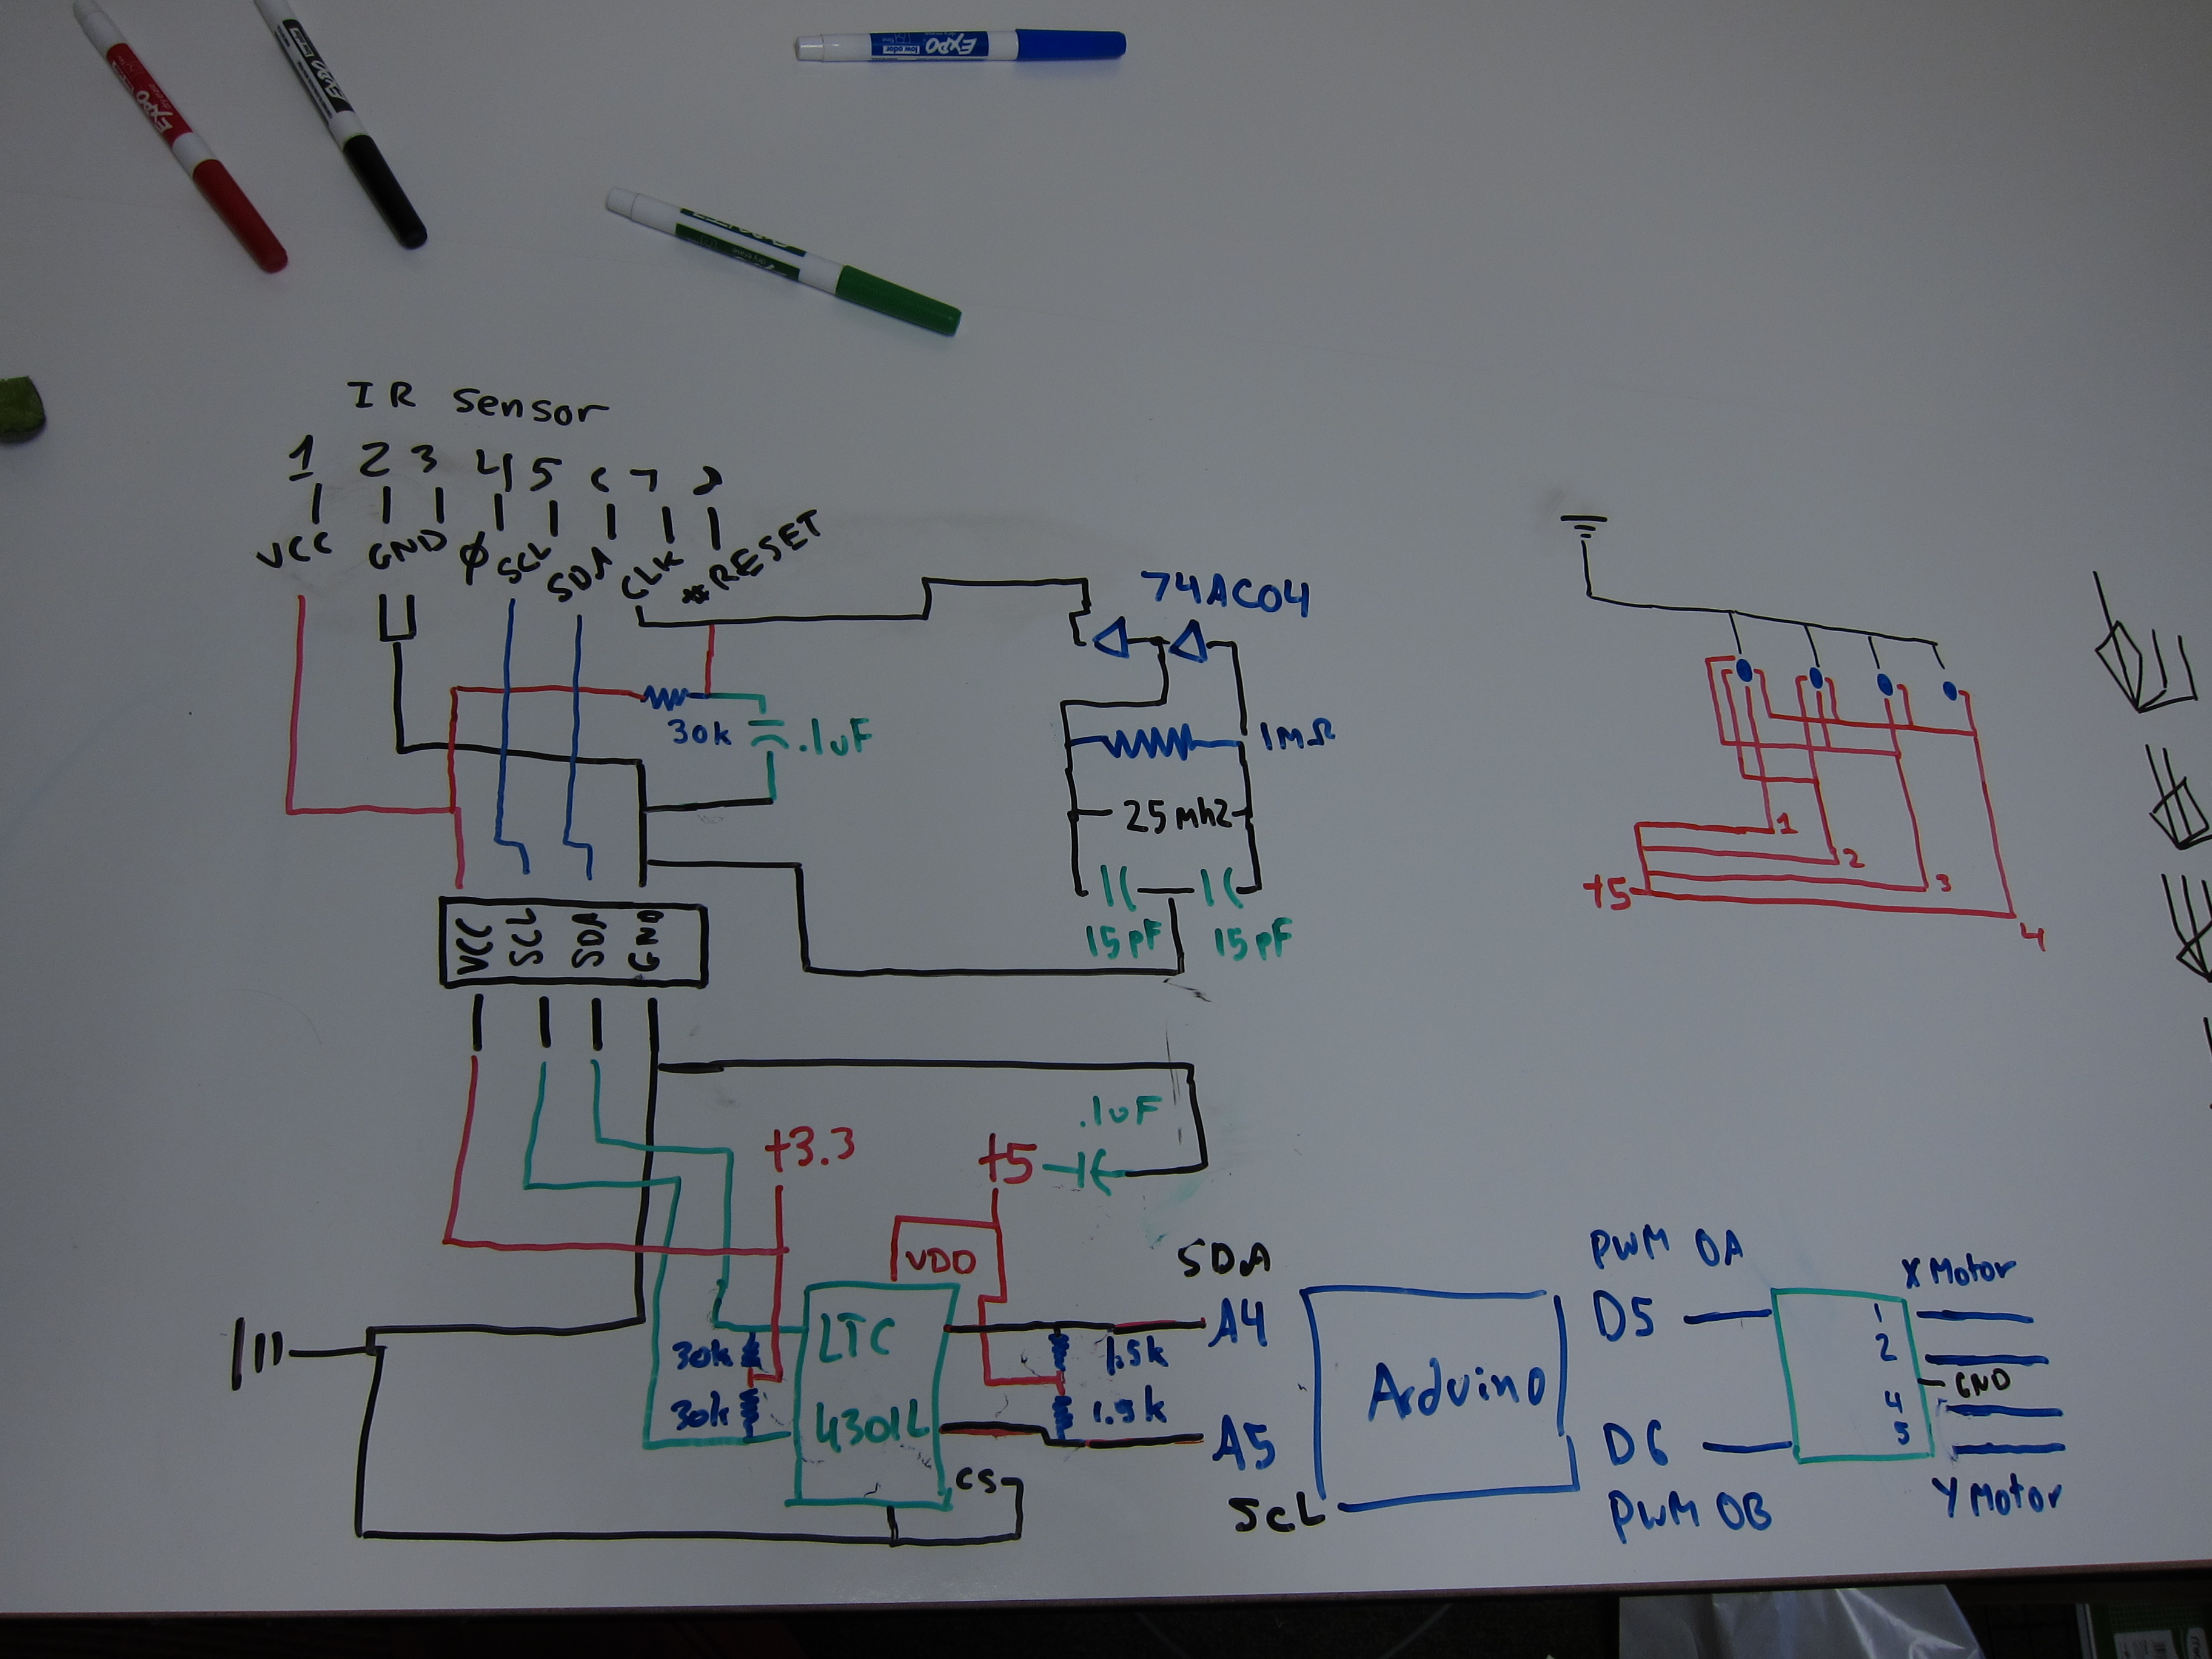 EXPO
EXPO
EXPO
low odor
IR Sensor
1 2 3 4 5 6 7 8
VCC GND φ SCL SDA CLK *RESET
74AC04
30k
.1uF
1MΩ
25 Mhz
15pF 15pF
VCC SCL SDA GND
.1uF
+3.3
+5
VDD
LTC
4301L
30k
30k
1.5k
1.5k
CS
SDA
A4
A5
SCL
Arduino
PWM 0A
D5
D6
PWM 0B
X Motor
1
2
GND
4
5
Y Motor
+5
1
2
3
4